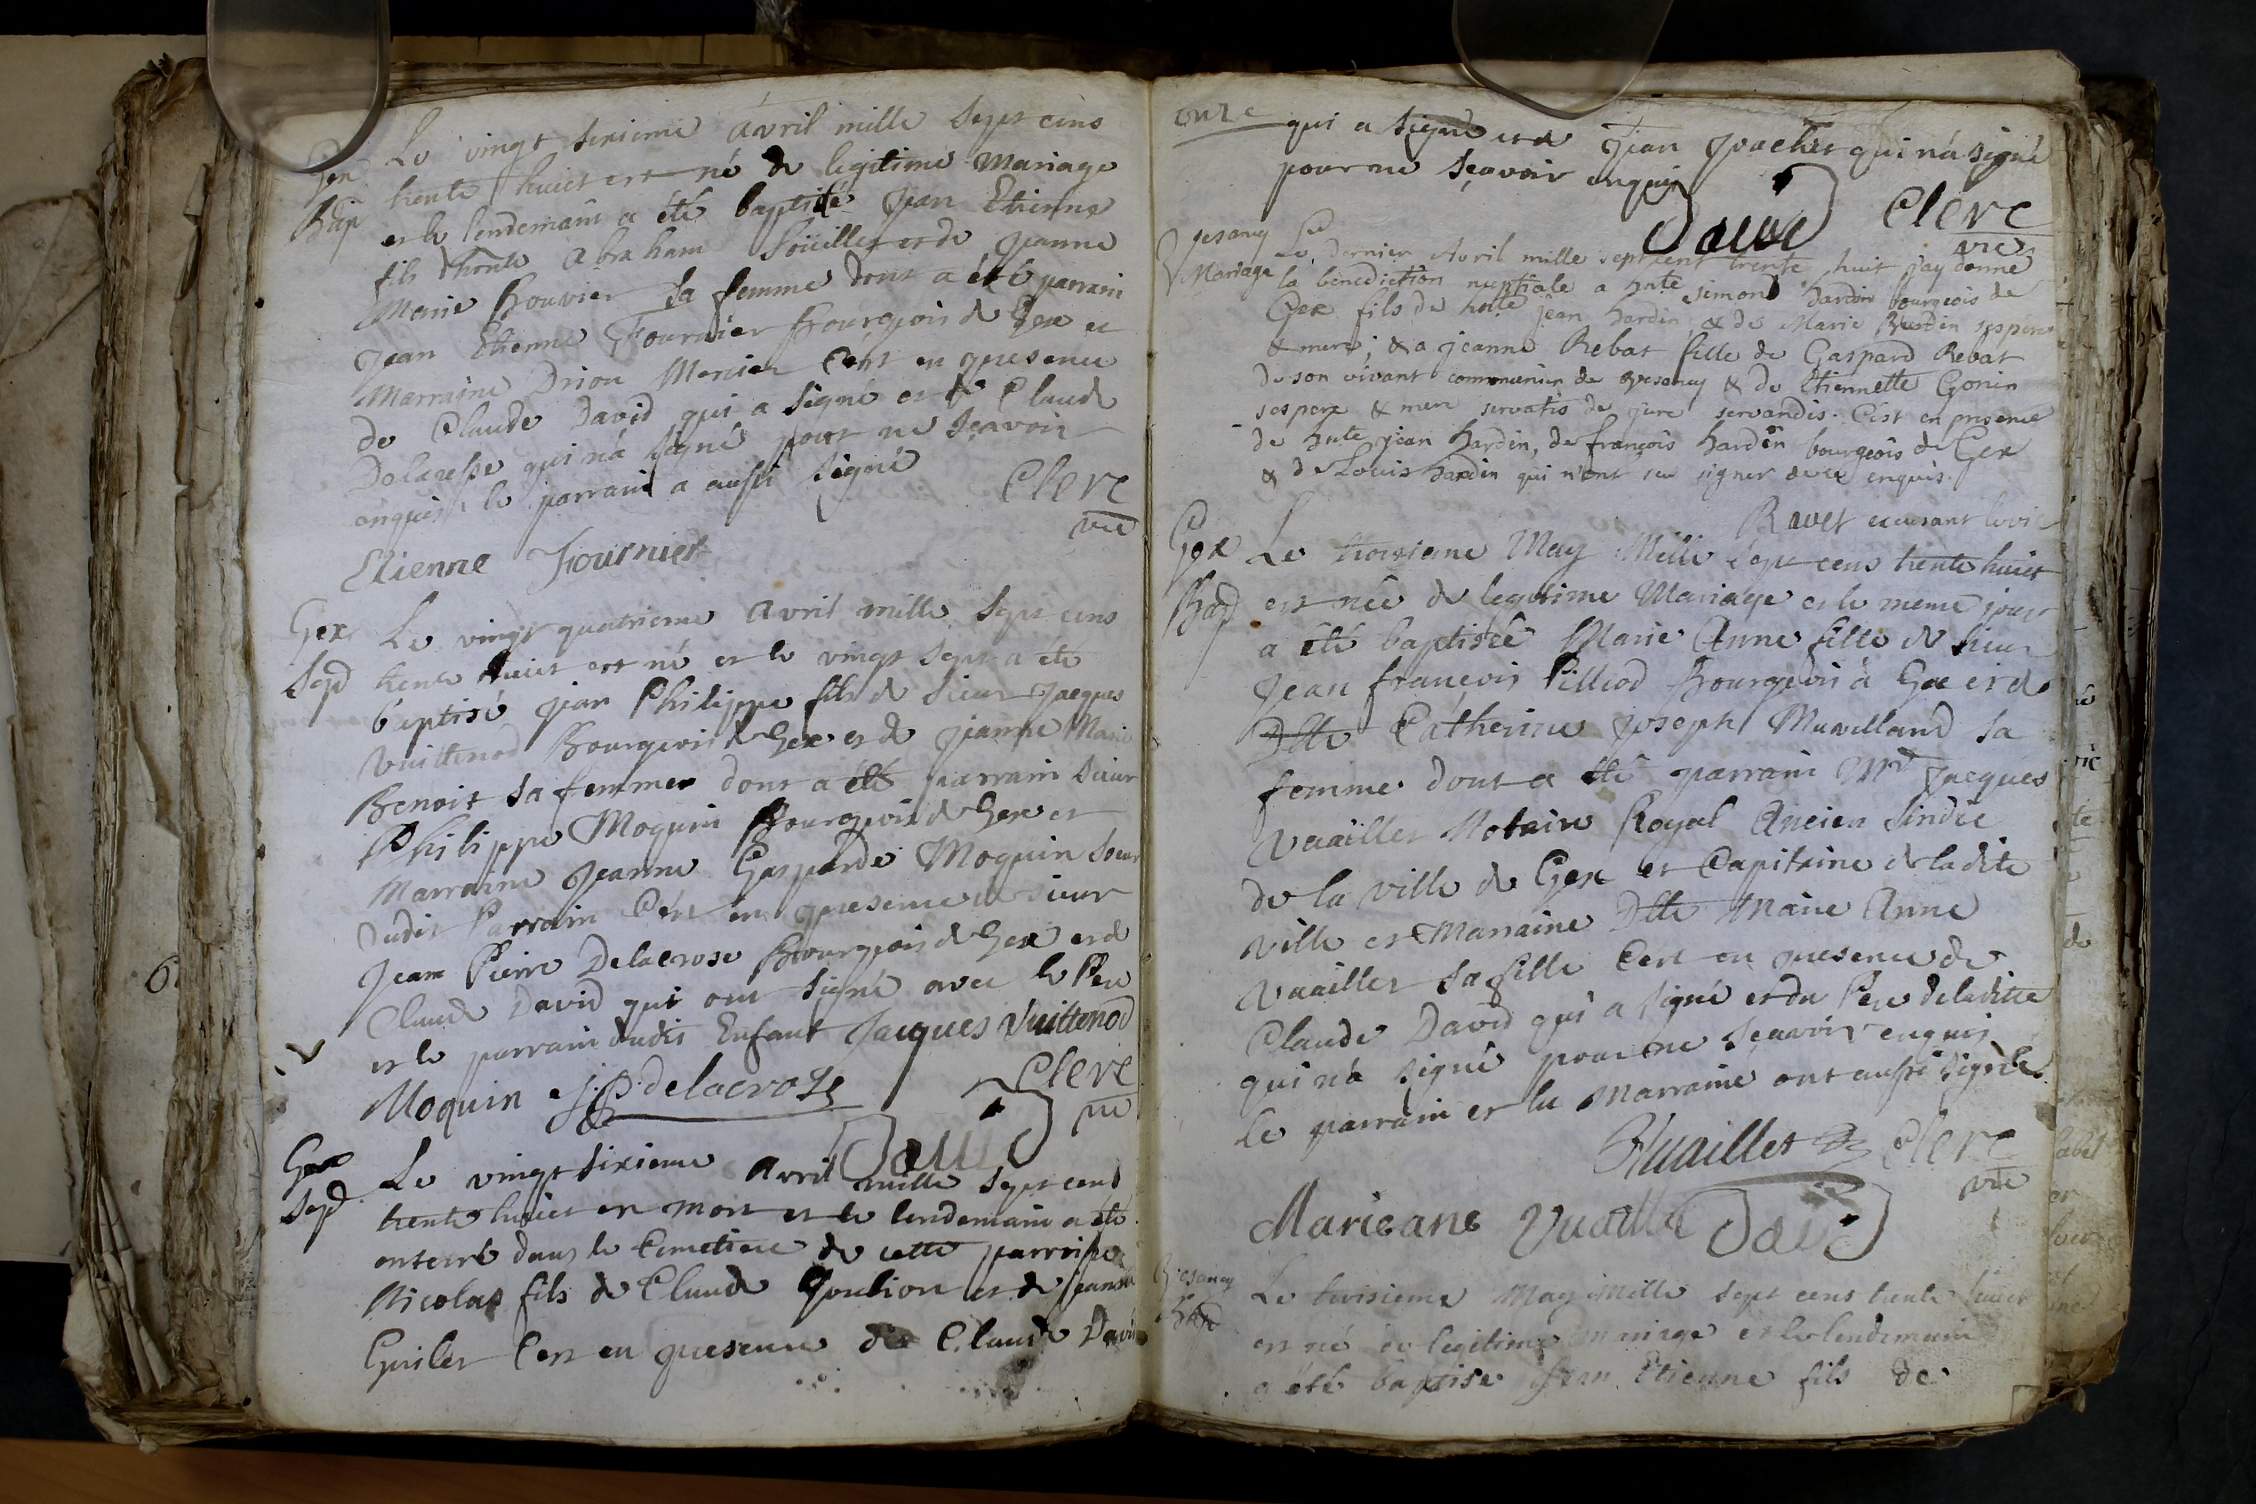 Gex
Bap
Le vingt sixieme avril mille sept cens
trente huict est né de legitime mariage
et le lendemain a été baptisé Jean Etienne
fils d'honte Abraham Soüillet et de Jeanne
Marie Bouvier sa femme dont a été parrain
Jean Etienne Fournier Bourgeois de Gex et
Marraine Drion Mercier C'est en presence
de Claude David qui a signé et de Claude
qui n'a signé pour ne sçavoir
enquis, le parrain a aussi signé
Clerc
vic
Etienne Fournier
Gex
Sepd
Le vingt quatrieme avril mille sept cens
trente huict est né et le vingt sept a été
baptisé Jean Philippe fils de sieur Jacques
Vuittenod Bourgeois de Gex et de Jeanne Marie
Benoit sa femme dont a été parrain sieur
Philippe Moquin Bourgeois de Gex et
Marraine Jeanne Gasparde Moquin soeur
dudit Parrain C'est en presence de sieur
Jean Pierre Delacrose Bourgeois de Gex et de
Claude David qui ont signé avec le Pere
et le parrain dudit Enfant Jacques Vuittenod
Moquin J:P: delacroze Clerc
vic
David
Gex
Sepd
Le vingt sixieme avril mille sept cens
trente huict est mort et le lendemain a été
enterré dans le Cemetiere de cette parroisse
Nicolas fils de Claude et de Jeanne
C'est en presence de Claude David
onze
qui a signé et de Jean qui n'a signé
pour ne sçavoir enquis
David Clerc
vic
Vesancy
Mariage
Le dernier Avril mille sept cent trente huit j'ay donné
la benediction nuptiale a hnte simond hardin bourgeois de
Gex fils de hnte jean hardin, & de Marie ses pere
& mere; & a jeanne Rebat fille de Gaspard Rebat
de son vivant communier de vesancy & de Etiennette Gonin
ses pere & mere servatis de jure servandis. C'est en presence
de hnte jean hardin, de françois hardin bourgeois de Gex
& de Louis hardin qui n'ont seu signer de ce enquis.
Ravet excusant le vic
Gex
Bapd
Le troisieme May Mille sept cens trente huict
est née de legitime Mariage et le meme jour
a été baptisée Marie Anne fille de sieur
Jean françois Pilliod Bourgeois à Gex et de
Dlle Catherine Joseph sa
femme dont a été parrain Mre Jacques
Vuaillet Notaire Royal Ancien Sindic
de la ville de Gex et Capitaine de ladite
ville et Marraine Dlle Marie Anne
Vuaillet sa fille C'est en presence de
Claude David qui a signé et du Pere de ladite
qui n'a signé pour ne sçavoir enquis
le parrain et la Marraine ont aussi signé
Vuaillet Clerc
vic
Marieane Vuaillet David
Vesancy
Bapd
Le troisieme May Mille sept cens trente huict
est né de legitime mariage et le lendemain
a été baptisé Jean Etienne fils de